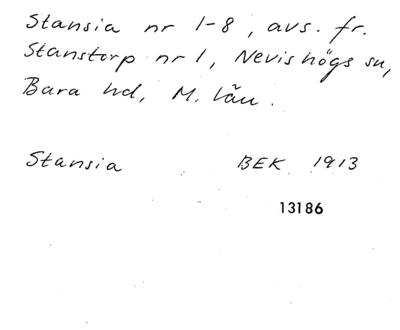 Stansia nr 1-8, avs. fr.
Stanstorp nr 1, Nevishögs sn,
Bara hd, M. län.
Stansia BEK 1913
13186